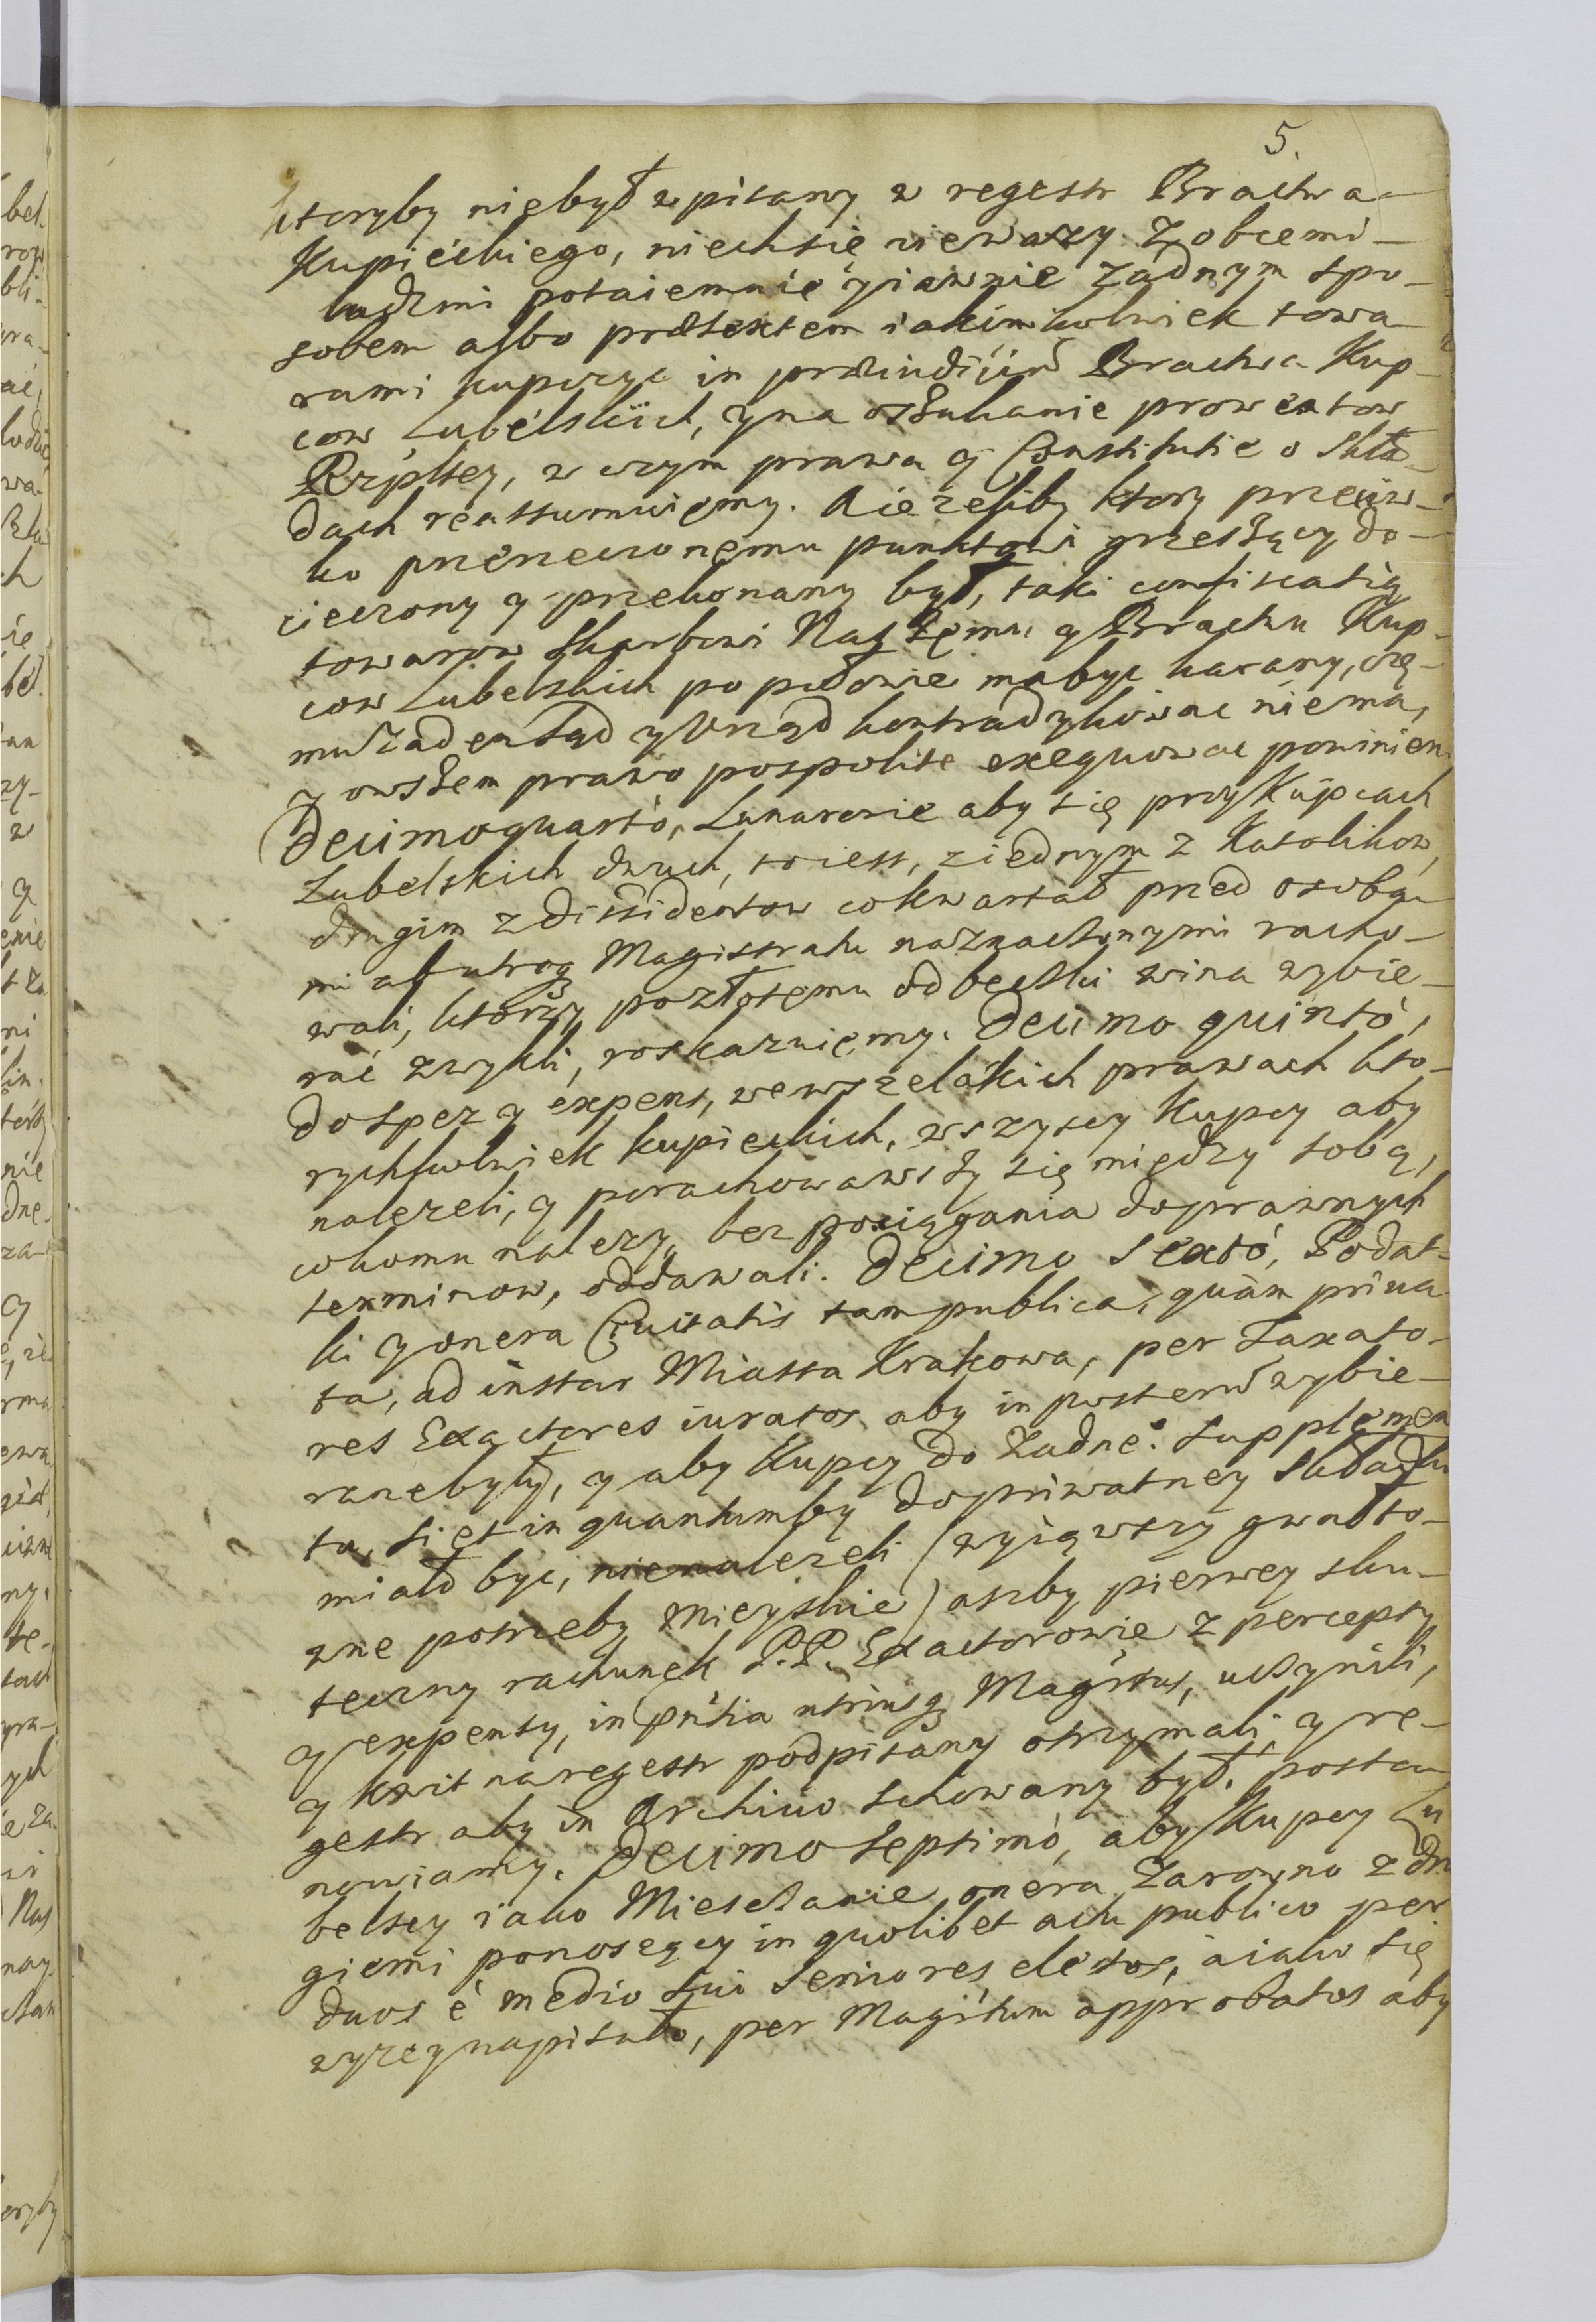 5.
ktoryby niebył wpisany w regestr Bractwa
Kupiéckiego, niech się niewazy z obcemi
ludzmi potaiemnie y iawnie zadnym spo-
sobem albo prætextem iakimkolwiek towa-
rami kupczyc in præiudiciu Bractwa Kup-
cow Lubélskich, y na oszukanie prowentow
Rzpltey, w czym prawa y Constitutie o Skła-
dach reassumuiemy. A iezeliby ktory przeciw-
ko pneneczonemu punktowi grzeszący do-
cieczony y przekonany był, taki confiscatią
towarow skarbowi Naszemu y Bractwu Kup-
cow Lubelskich po połowie ma byc karany, cze-
mu zaden Sąd y Vrząd kontradykowac niema,
y owszem prawo pospolite exequowac powinien
Decimoquartò, Lunarowie aby się przy Kupcach
Lubelskich dwuch, to iest, z iednym z Katolikow,
drugim z dissidentow co kwartał pred osoba-
mi ab utroq Magistratu naznaczonymi racho-
wali, ktorzy pozłotemu od beczki wina wybie-
rać zwykli, roskazuiemy. Decimo quintò,
do spez y expens, we wszelakich prawach kto-
rychkolwiek kupieckich, wszyscy Kupcy aby
nalezeli, y porachowawszy się między sobą,
co komu nalezy, bez pociągania do prawnych
terminow, oddawali. Decimo sextò, Podat-
ki y onera Ciuitatis tam publica, quàm priua
ta, ad instar Miasta Krakowa, per Taxato-
res Exactores iuratos aby in posterũ wybie-
rane były, y aby Kupcy do zadne: supplemen
tu, si et in quantum by do priwatney składki
miał byc, nienalezeli (wyiąwszy gwałto-
wne potrzeby Mieyskie) aszby pierwey sku-
teczny rachunek P.P. Exactorowie z percepty
y expensy, in pñtia utriusq Magrtus, uczynili,
y kwit na regestr podpisany otrzymali, y re-
gestr aby in Archiuo schowany był. postan
nowiamy. Decimo septimò, aby Kupcy Lu
belscy iako Miesczanie onera zarowno z dru
giemi ponoszący in quolibet actu publico per
duos è medio sui Seniores electos, a iako się
wyzey napisało, per Magrtum approbatos aby